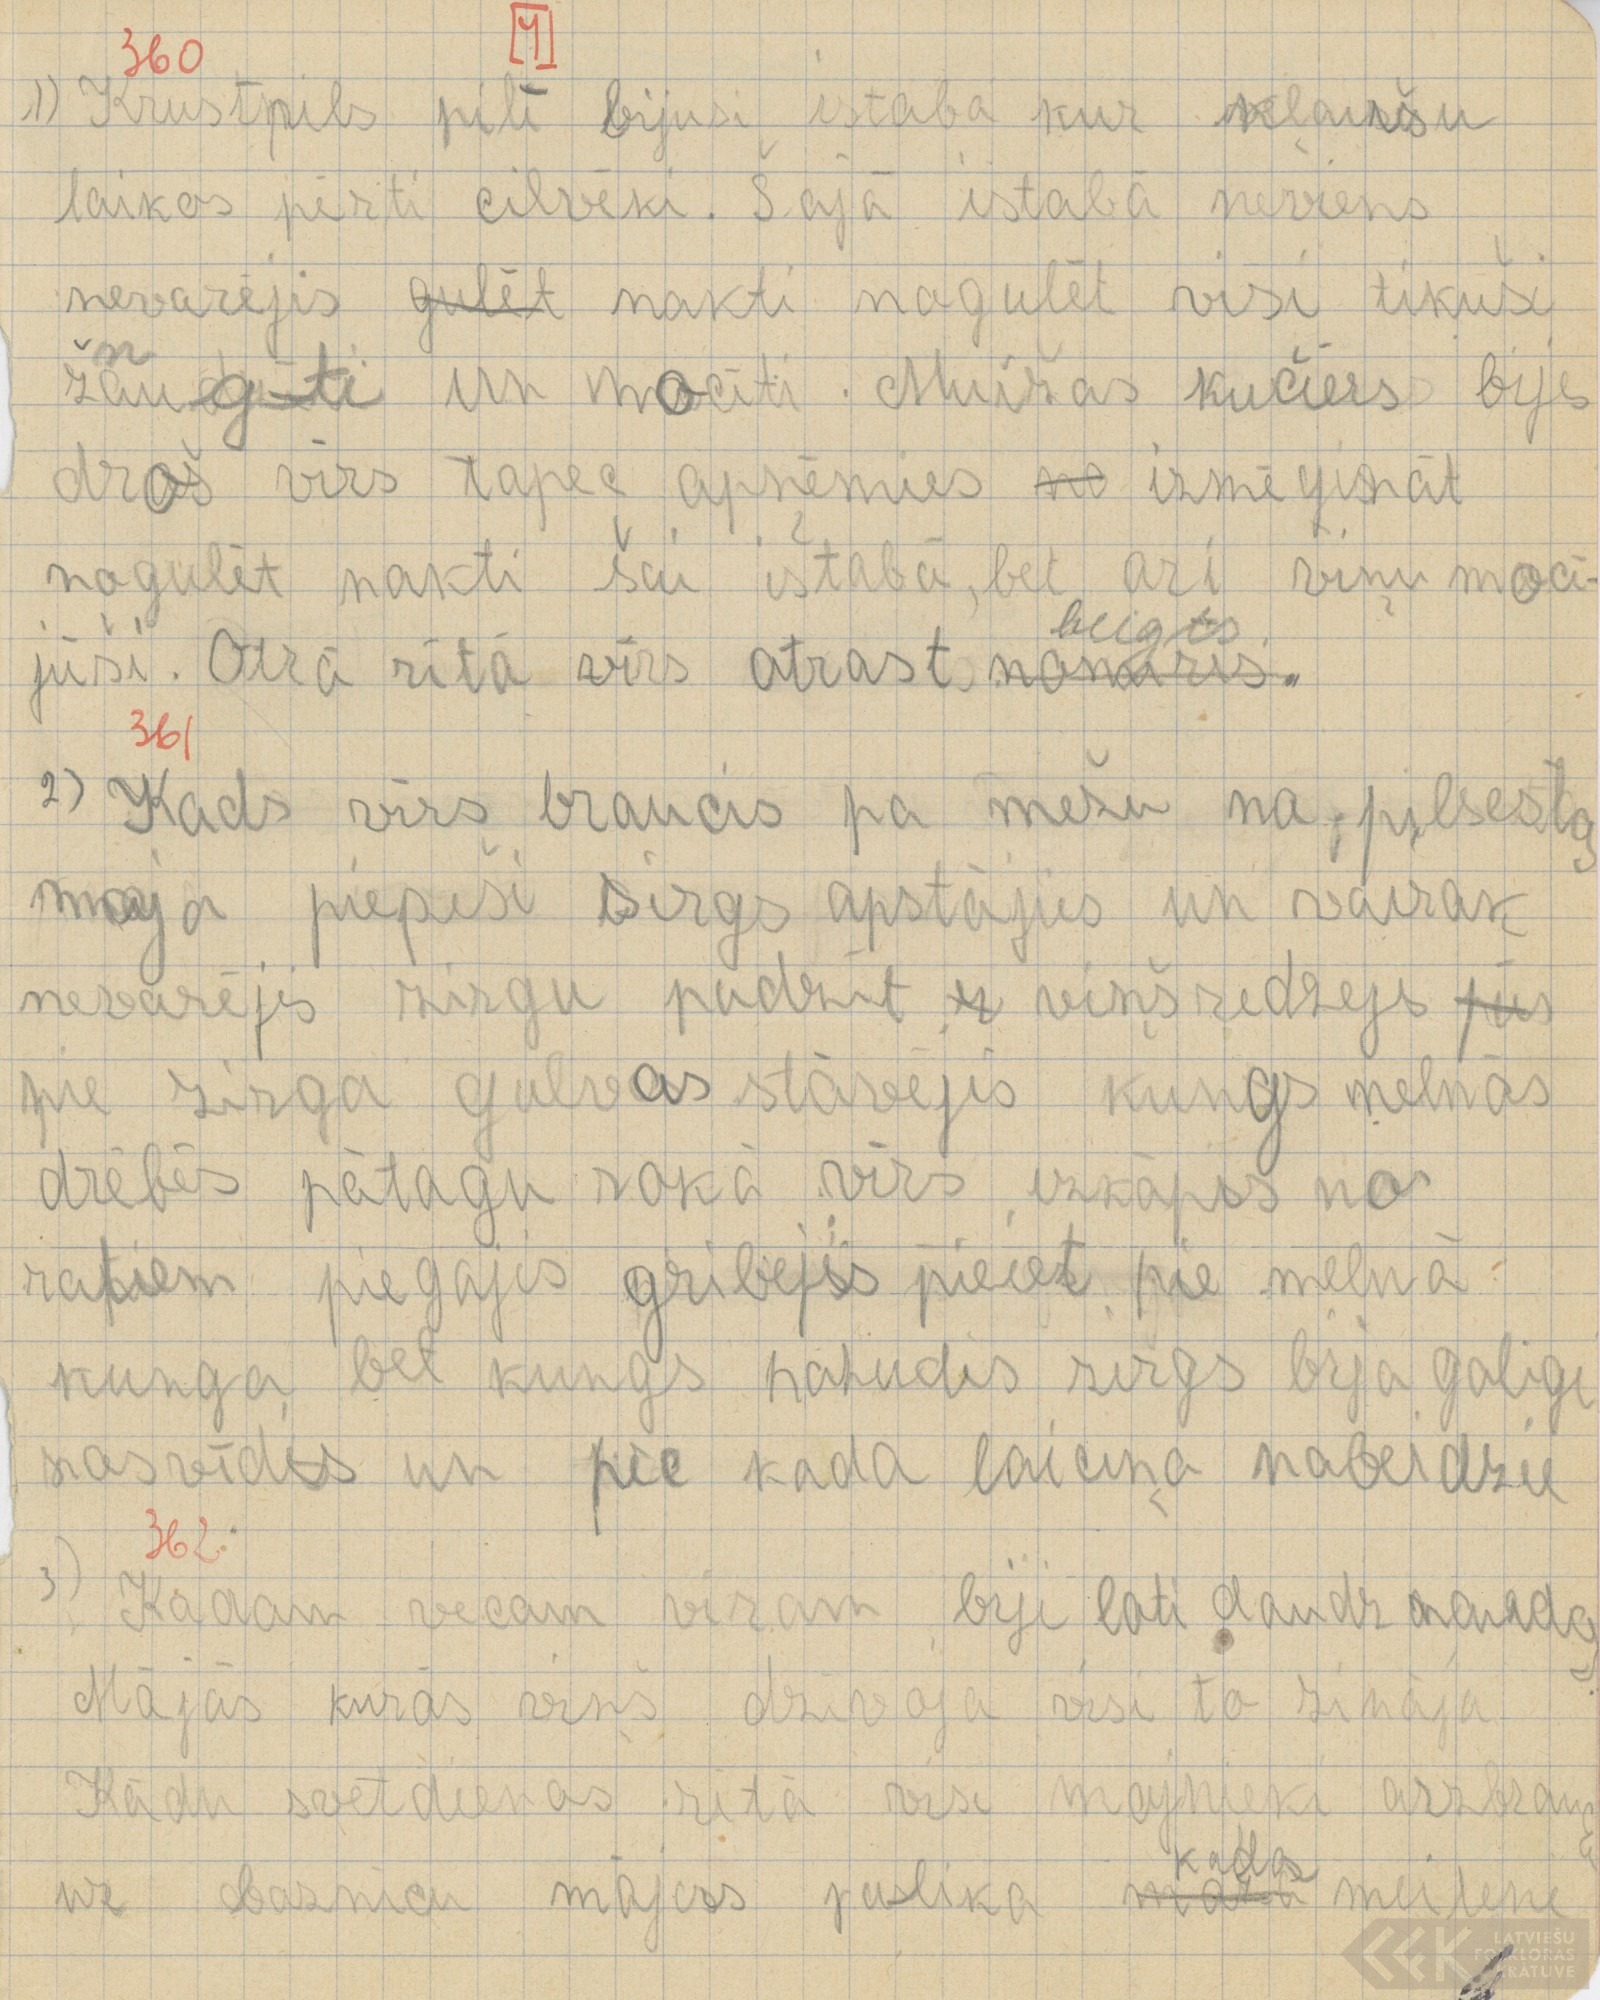 360 [4]
1) Krustpils pilī bijusi istaba kur klaušu
laikos pērti cilvēki. Šajā istabā neviens
nevarējis gulēt nakti nogulēt visi tikuši
žņaugti un mocīti. Muižas kučiers bijis
drošs vīrs tapec apņēmies no izmēģināt
nogulēt nakti šai istabā, bet arī viņu mocī-
jūši. Otrā rītā vīrs atrasts beigts.
nomiris.
361
2) Kads vīrs braucis pa mežu na pilsestas
moja piepiši sirgs apstājies un vairak
nevarējis zirgu padzīt viņš redzejs
pie zirga galvas stāvējis kungs melnās
drēbēs pātagu rokā vīrs izkāpis no
ratiem piegājis gribejis pieiet pie melnā
kunga bet kungs pazudis zirgs bija galigi
nosvīdis un pēc kada laiciņa nobeidzie
362.
3) Kādam vecam vīram biji loti daudz naudas.
Mājās kurās viņš dzīvoja visi to zināja
Kādu svētdienas rītā visi mājnieki aizbrauce
uz baznīcu mājās palika kada
meitene
LATVIEŠU
FOLKLORAS
KRĀTUVE